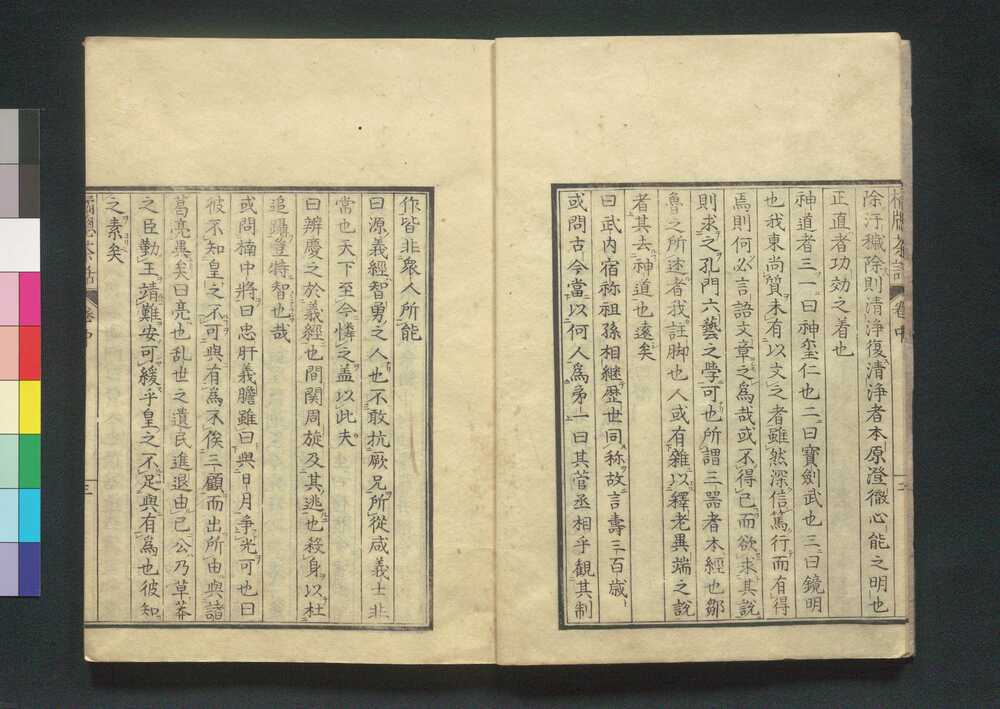 除汙穢除則清浄復清浄者本原澄徹心能之明也
正直者功効之着也
神道者三一曰神璽仁也二曰寶劍武也三曰鏡明
也我東尚質未有以文之者雖然深信篤行而有得
焉則何必言語文章之爲哉或不得已而欲求其説
則求之孔門六藝之學可也所謂三器者本經也鄒
魯之所述者我註脚也人或有雜以釋老異端之説
者其去神道也遠矣
曰武内宿祢祖孫相継歴世同称故言壽三百歳
或問古今當以何人爲㐧一曰其菅丞相乎観其制
作皆非衆人所能
曰源義經智勇之人也不敢抗厥兄所從咸義士非
當也天下至今憐之盖以此夫
曰辨慶之於義經也間関周旋及其逃也殺身以杜
追躡豈特智也哉
或問楠中將曰忠肝義膽雖曰與日月争光可也曰
彼不知皇之不可與有爲不俟三顧而出所由與諸
葛亮異矣曰亮也乱世之遺民進退由已公乃草莽
之臣勤王靖難安可緩乎皇之不足與有爲也彼知
之素矣
橘窓茶話
卷中
三